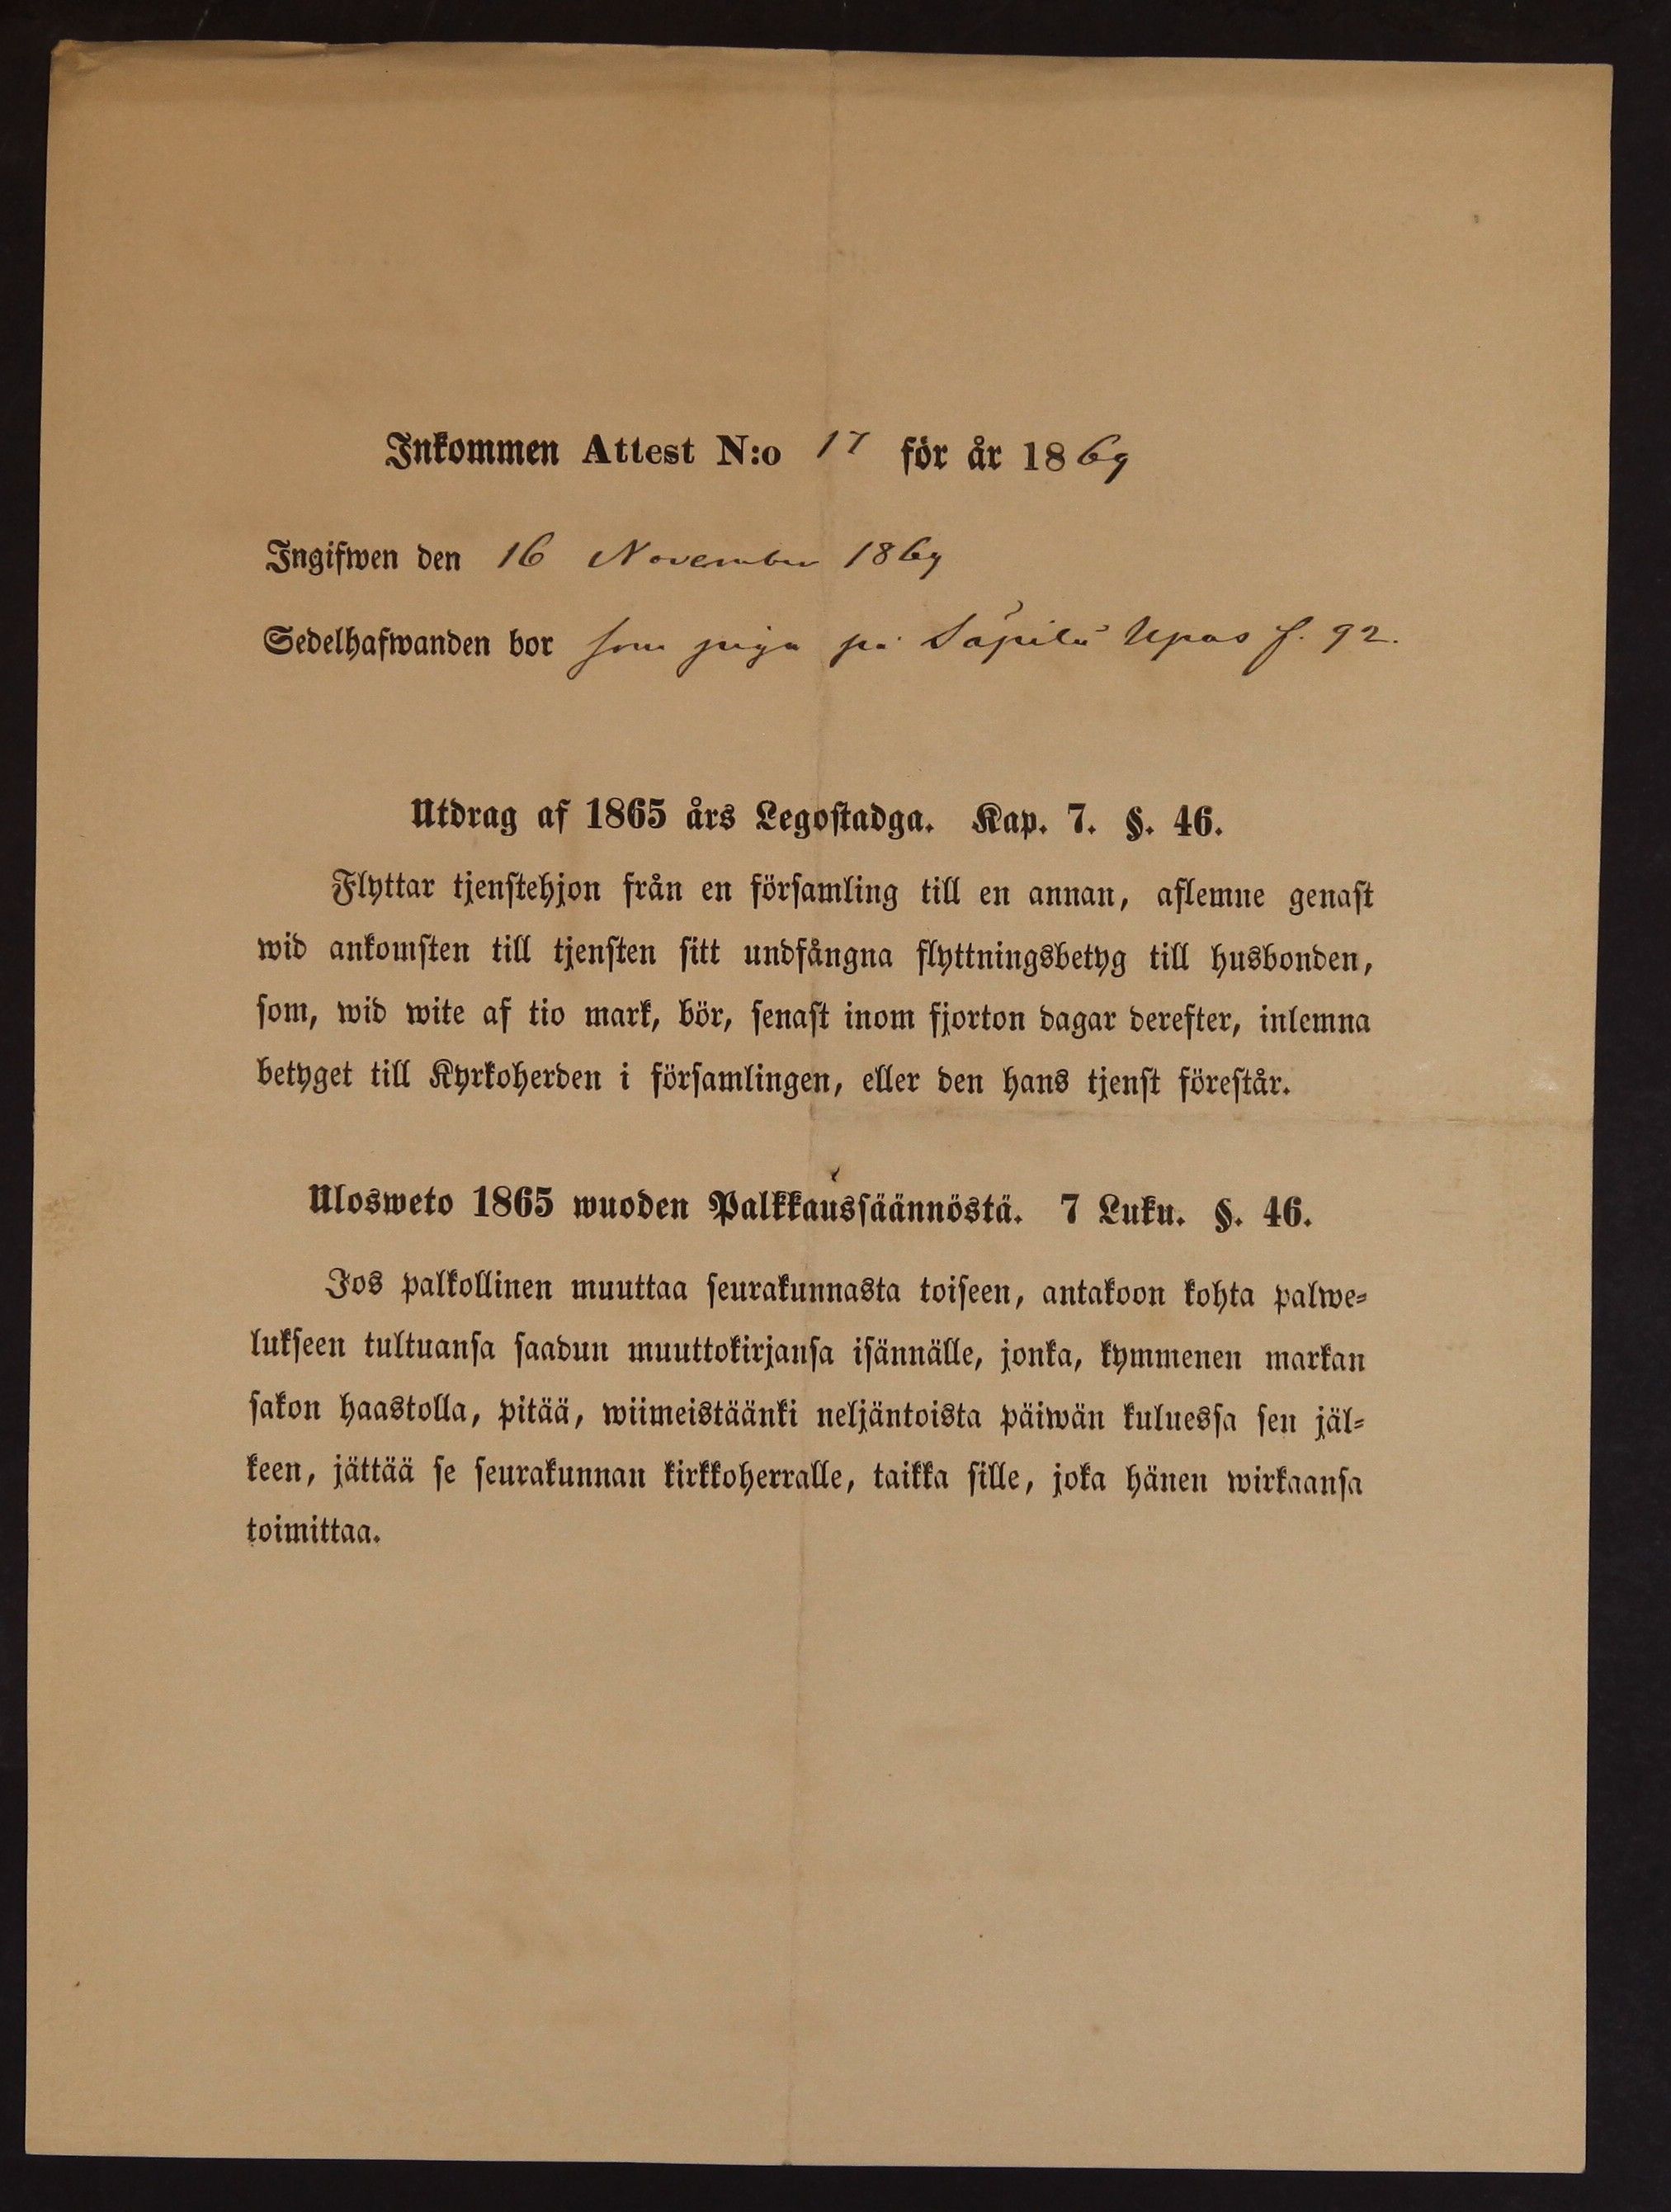 Inkommen Attest N:o 17 för år 1869
Ingifwen den 16 November 1869
Sedelhafwanden bor som piga på Säpilä Upas f. 92.
Utdrag af 1865 års Legostadga. Kap. 7. §. 46.
Flyttar tjenstehjon från en församling till en annan, aflemne genast
wid ankomsten till tjensten sitt undfångna flyttningsbetyg till husbonden,
som, wid wite af tio mark, bör, senast inom fjorton dagar derefter, inlemna
betyget till Kyrkoherden i församlingen, eller den hans tjenst förestår.
Ulosweto 1865 wuoden Palkkaussäännöstä. 7 Luku. §. 46.
Jos palkollinen muuttaa seurakunnasta toiseen, antakoon kohta palwe-
lukseen tultuansa saadun muuttokirjansa isännälle, jonka, kymmenen markan
sakon haastolla, pitää, wiimeistäänki neljäntoista päiwän kuluessa sen jäl-
keen, jättää se seurakunnan kirkkoherralle, taikka sille, joka hänen wirkaansa
toimittaa.